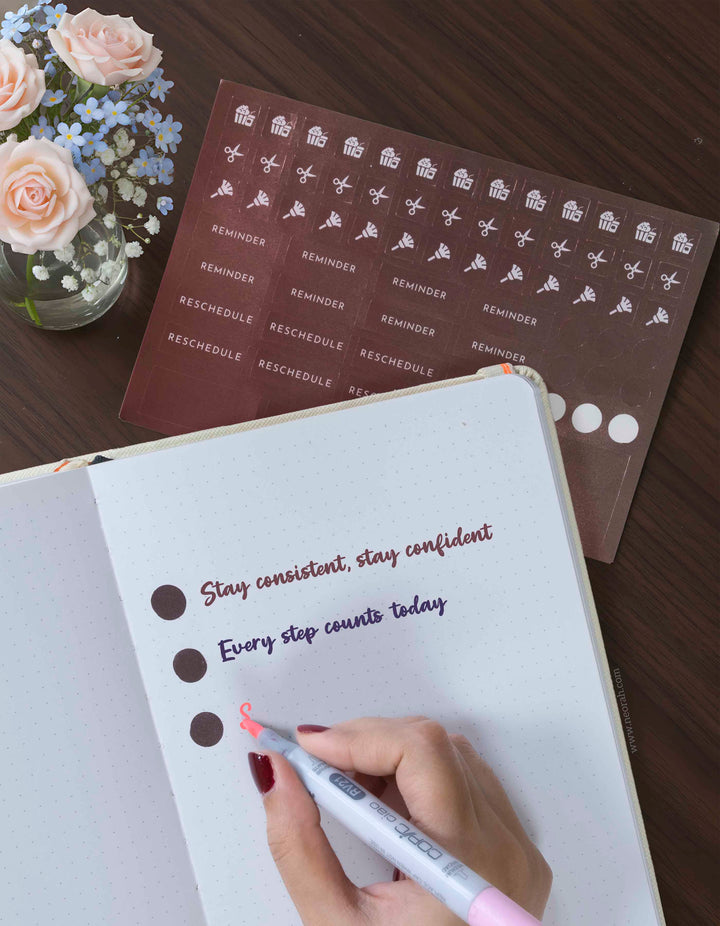 REMINDER
REMINDER
REMINDER
REMINDER
REMINDER
REMINDER
REMINDER
REMINDER
RESCHEDULE
RESCHEDULE
RESCHEDULE
RESCHEDULE
RESCHEDULE
Stay consistent, stay confident
Every step counts today
www.neorah.com
COPIC ciao